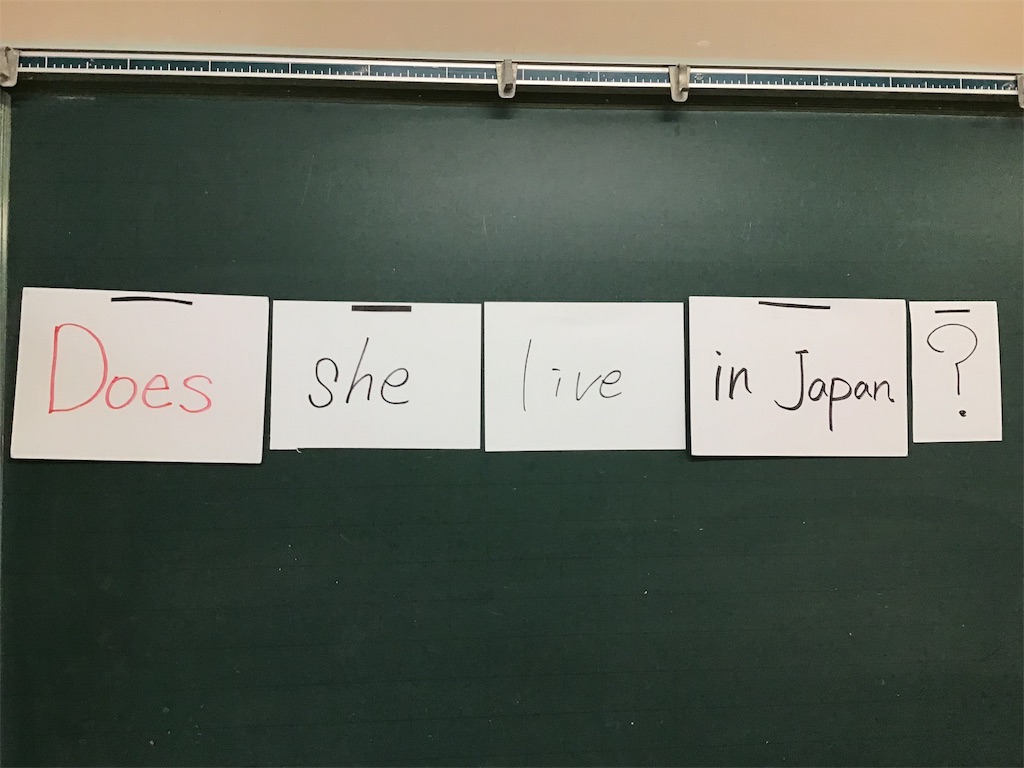 Does she live in Japan ?